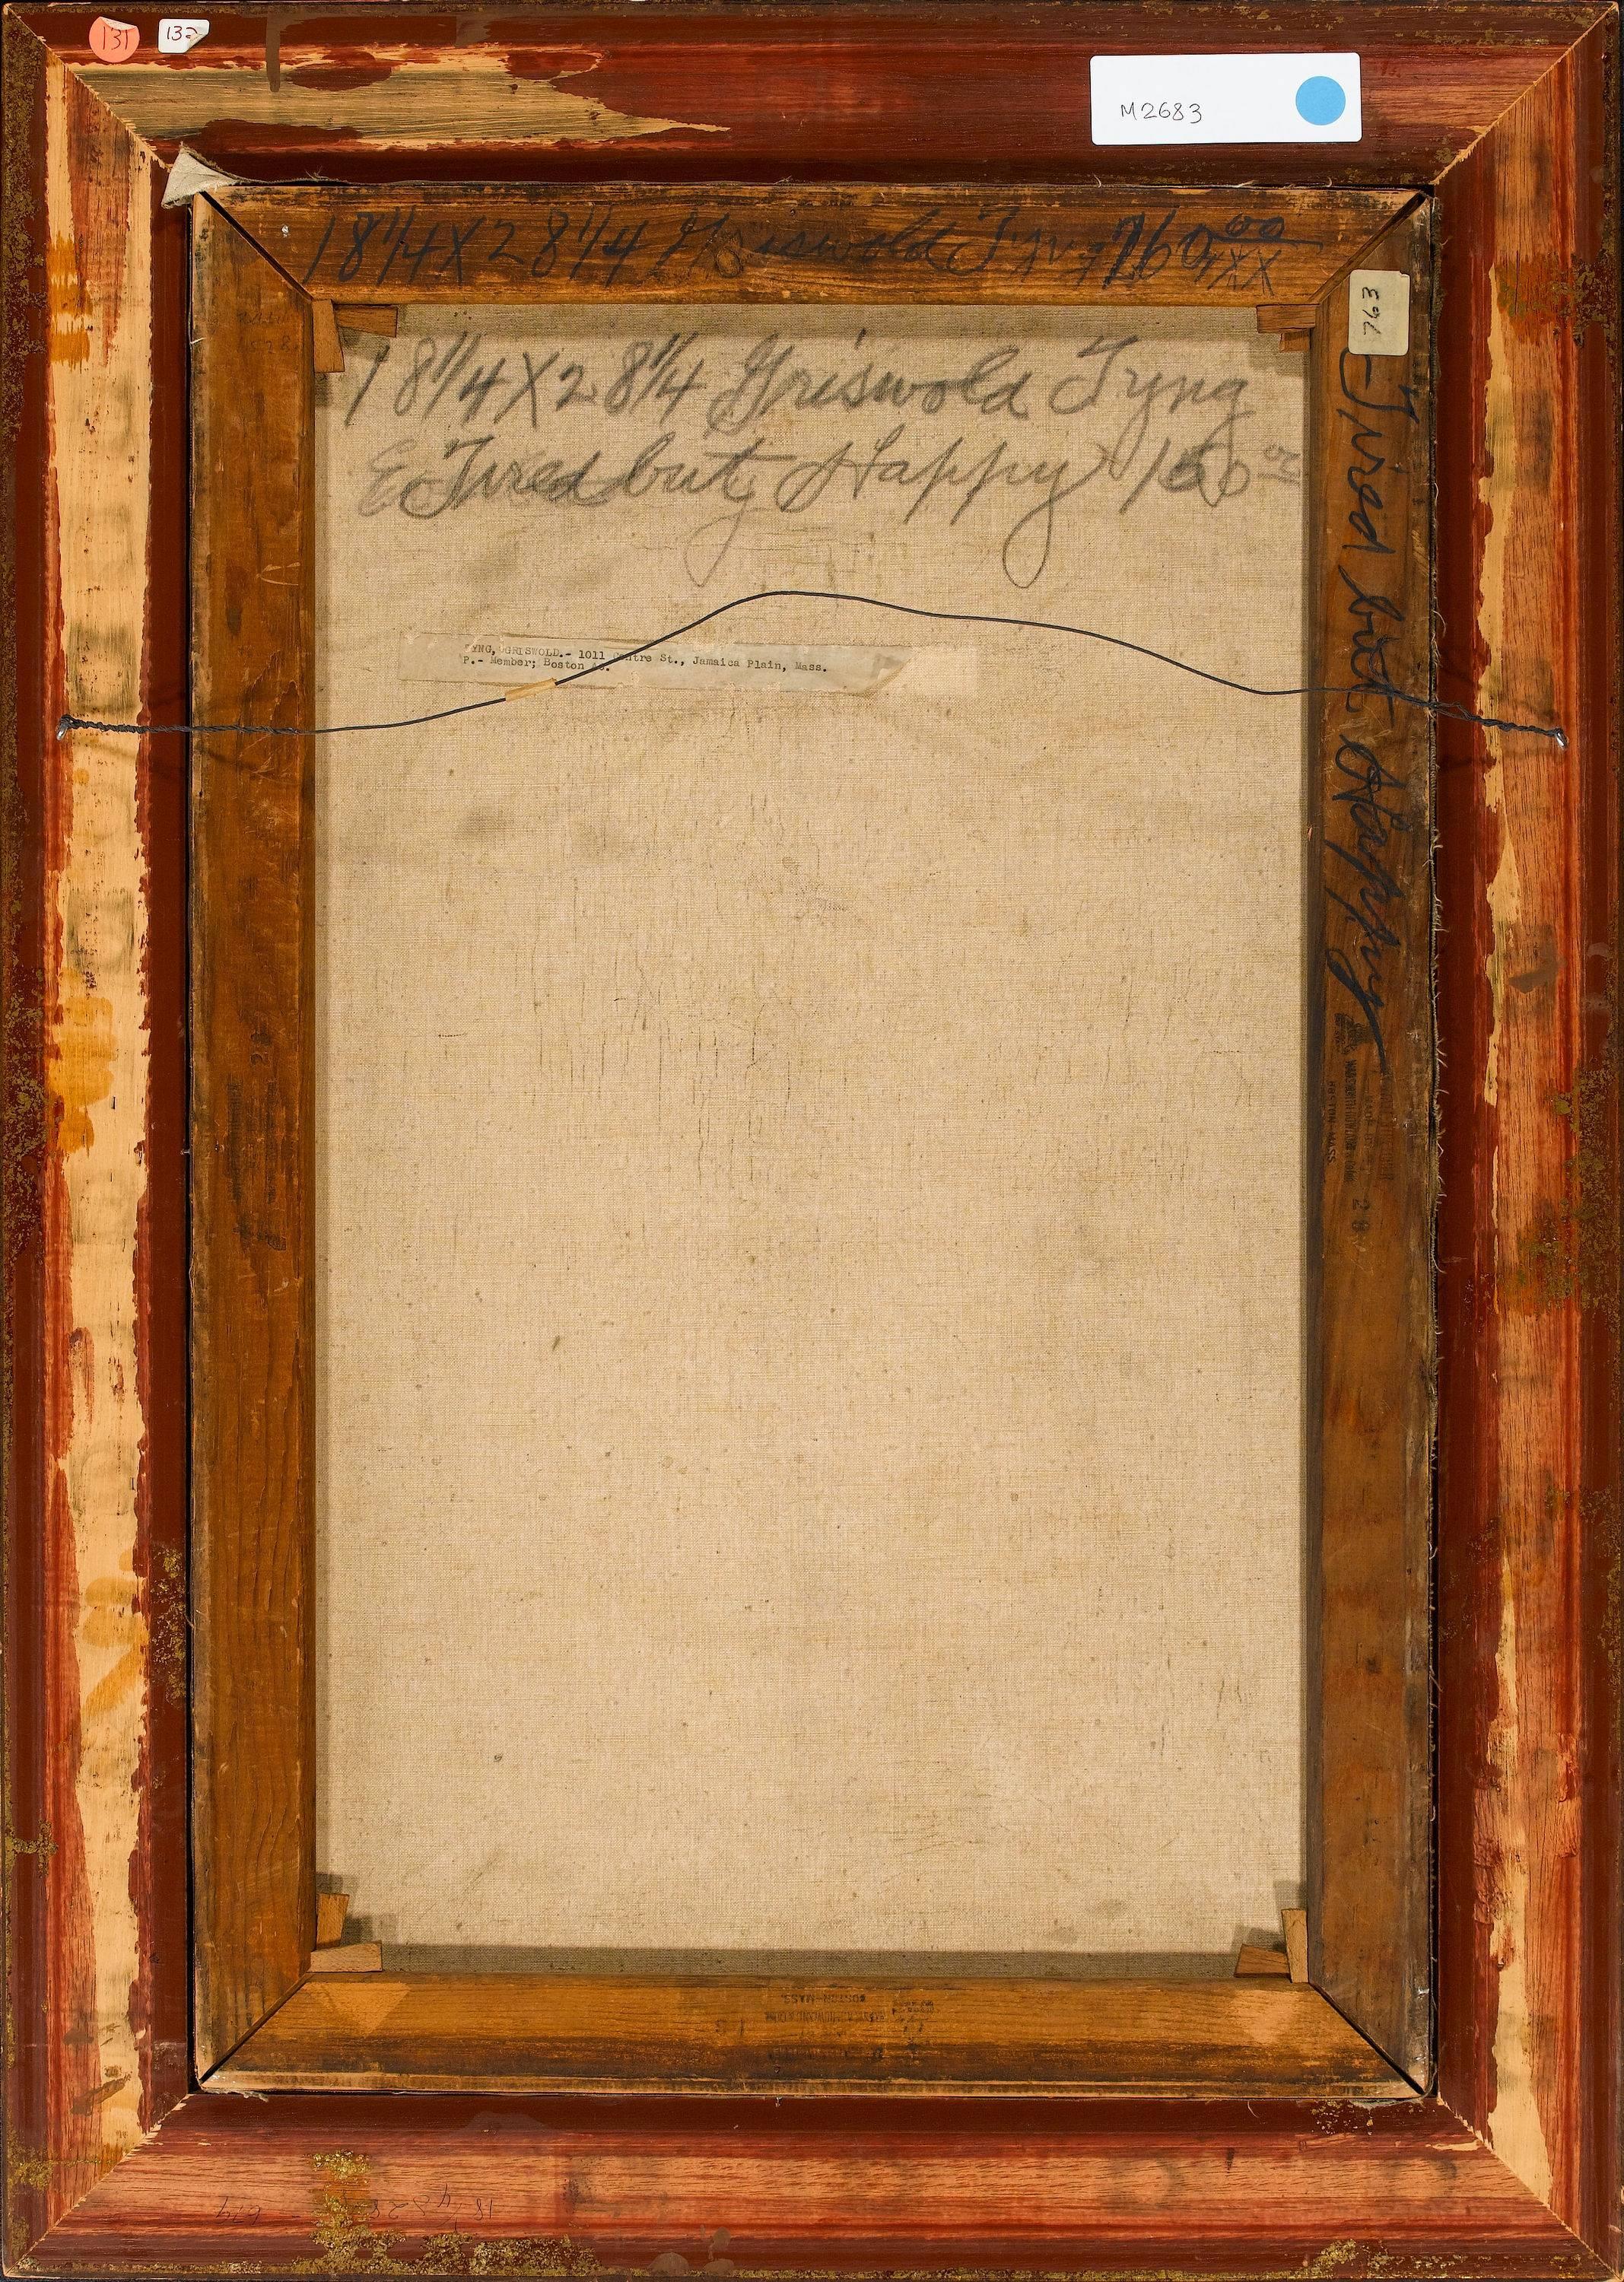 131
132
M2683
18 1/4 X 28 1/4 Griswold Tyng 00
763
18 1/4 X 28 1/4 Griswold Tyng
Tired but Happy
Tired but Happy
YNG, GRISWOLD.- 1011 Centre St., Jamaica Plain, Mass.
P.- Member; Boston
BOSTON-MASS.
28
BOSTON-MASS.